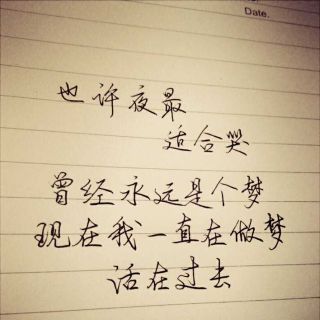 Date.
也许夜最
适合哭
曾经永远是个梦
现在我一直在做梦
活在过去